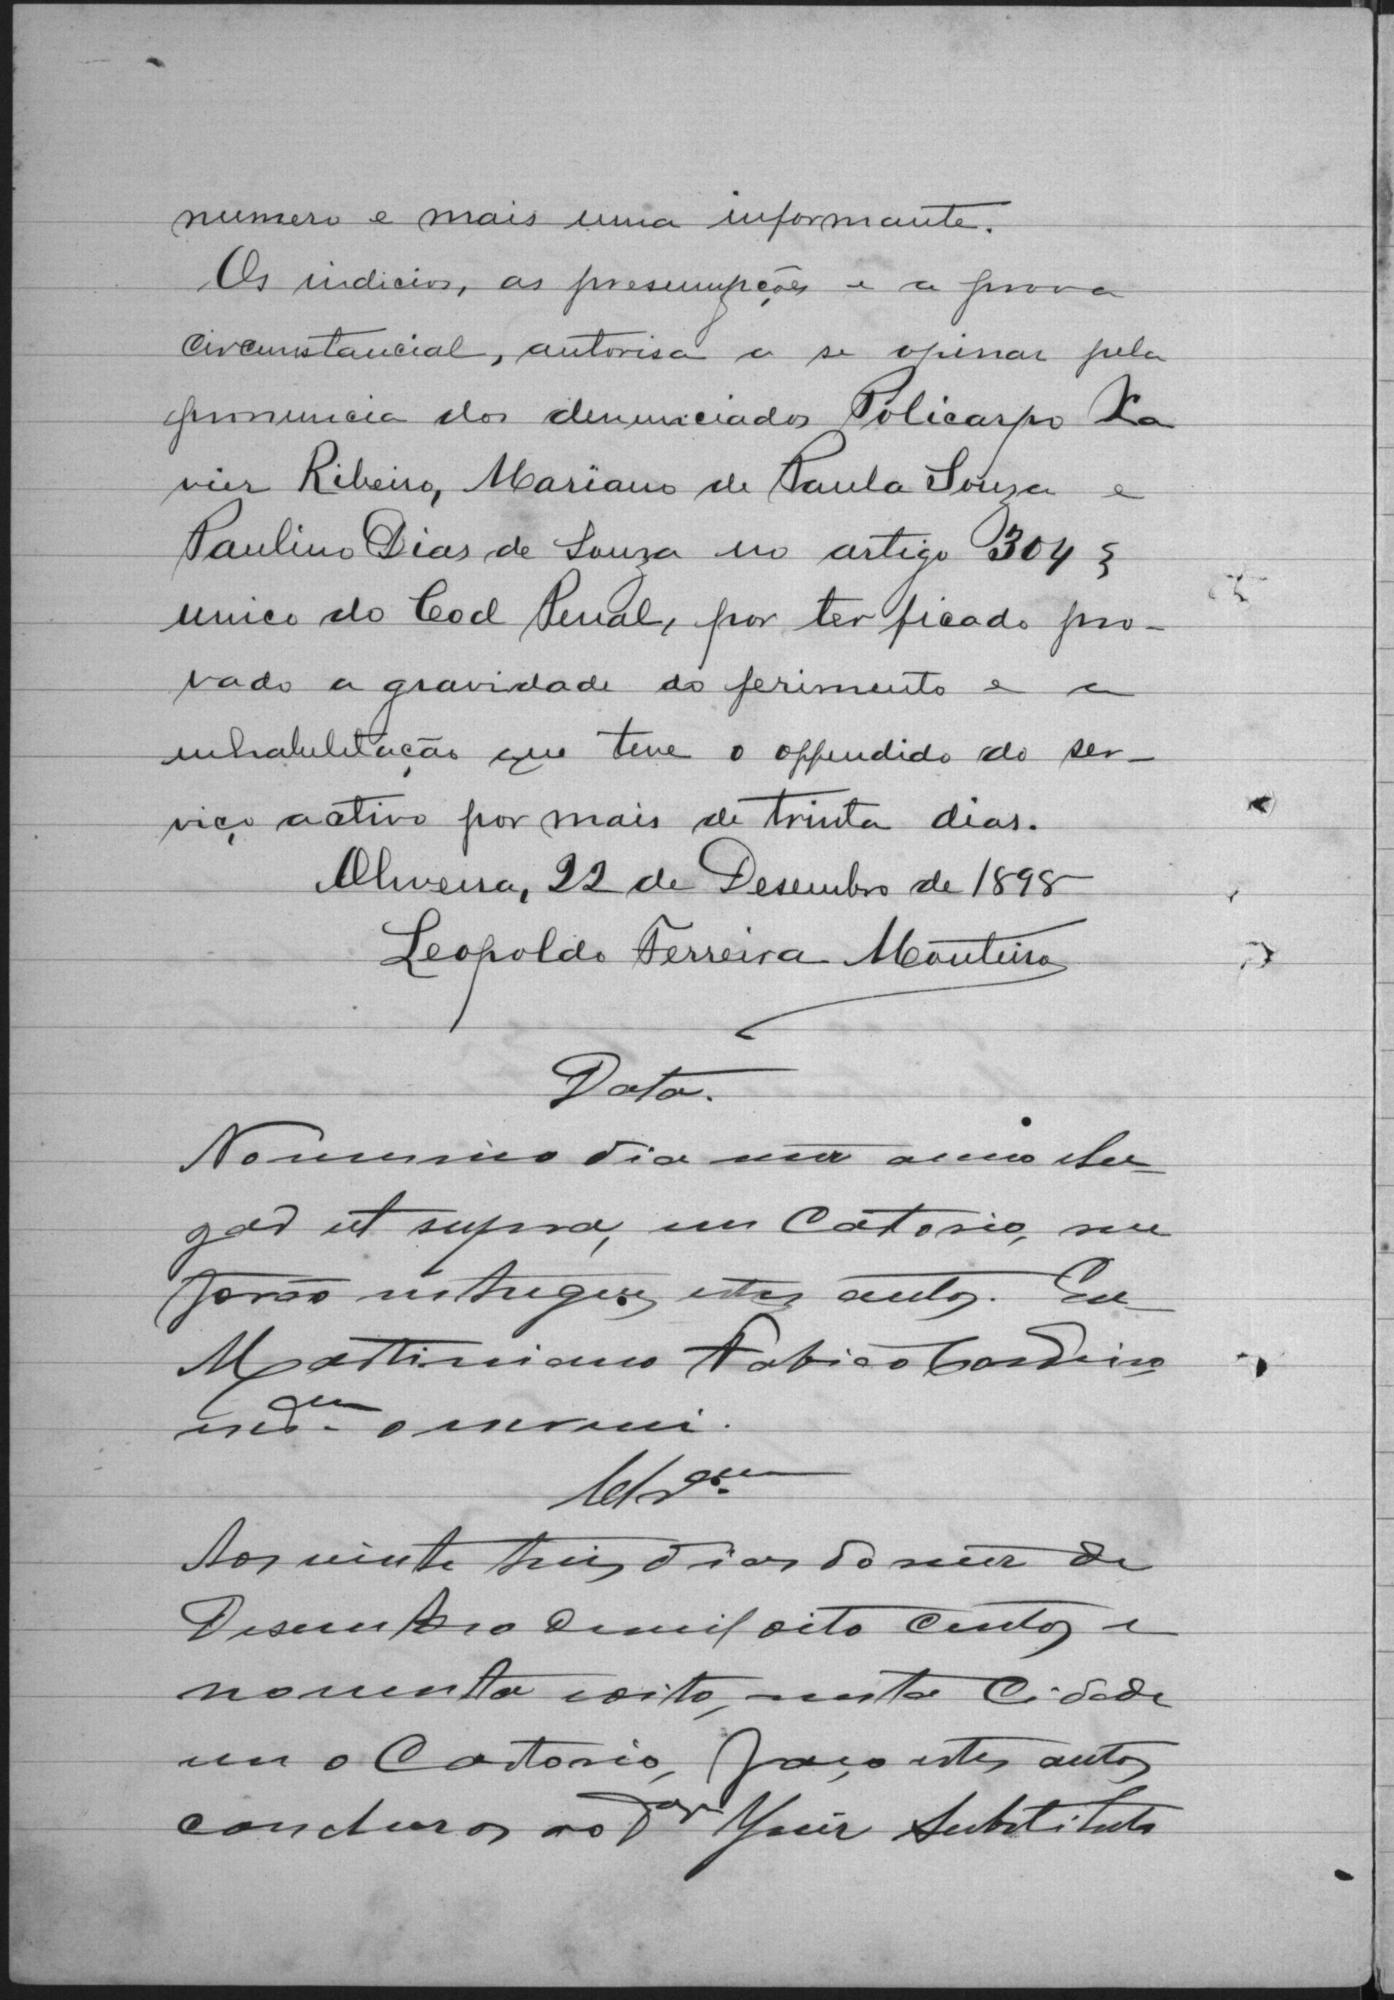 numero e mais uma informante.
Os indicios, as presumpções e a prova
circumstancial, autorisa a se opinar pela
pronuncia dos denunciados Policarpo Xa
vier Ribeiro, Mariano de Paula Souza e
Paulino Dias de Souza no artigo 304 §
unico do Cod Penal, por ter ficado pro-
vado a gravidade do ferimento e a
inhabilitação que teve o offendido do ser-
viço activo por mais de trinta dias.
Oliveira, 22 de Desembro de 1898
Leopoldo Ferreira Monteiro
Data.
No mesmo dia mez anno e lu-
gar ut supra, em Cartorio, me
forão entregues estes autos. Eu
Martiniano Fabião Cordeiro,
escrivi.
Clsam
Aos vinte treis dias do mez de
Desembro de mil oito centos e
noventa e oito, nesta Cidade
em o Cartorio, faço estes autos
concluzos ao Dor Juiz Substituto